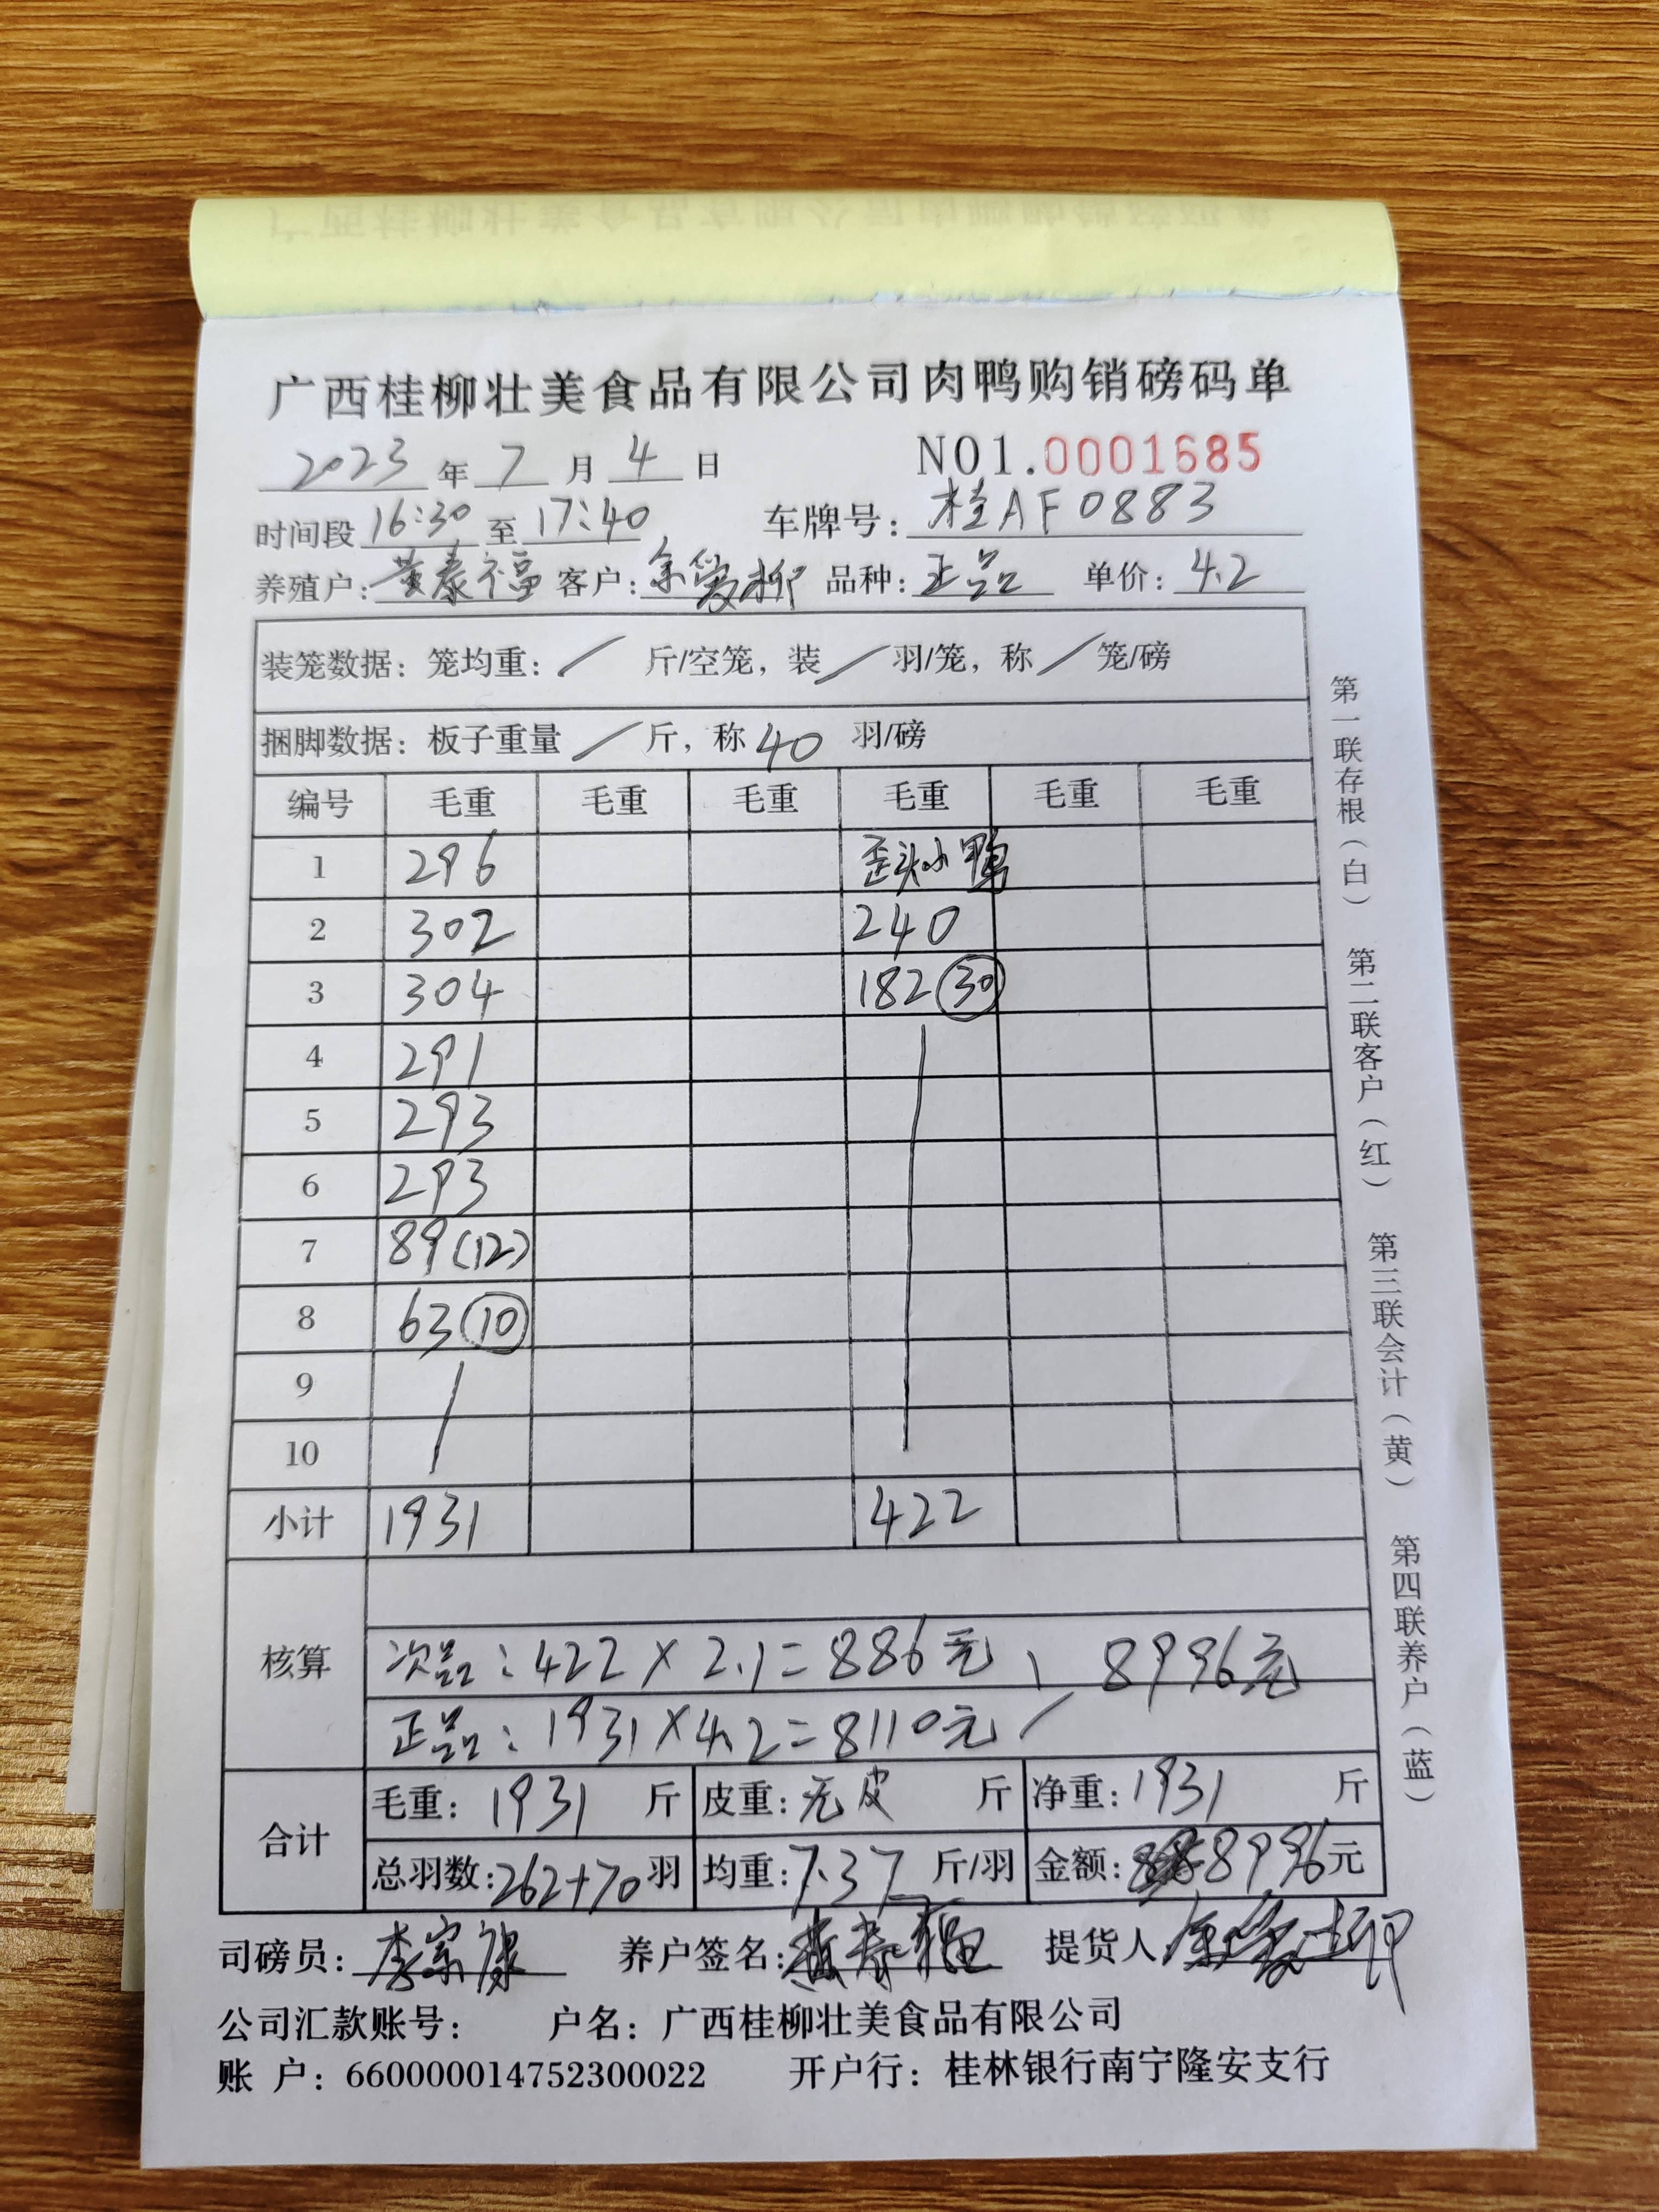 广西桂柳壮美食品有限公司肉鸭购销磅码单
2023 年 7 月 4 日 NO1.0001685
时间段 16:30 至 17:40 车牌号: 桂AF0883
养殖户: 黄泰福 客户: 余爱柳 品种: 正品 单价: 4.2
装笼数据: 笼均重: / 斤/空笼, 装 / 羽/笼, 称 / 笼/磅
捆脚数据: 板子重量 / 斤, 称 40 羽/磅
编号 毛重 毛重 毛重 毛重 毛重 毛重
1 296 歪头小鸭
2 302 240
3 304 182 (30)
4 291
5 293
6 293
7 89 (12)
8 63 (10)
9
10
小计 1931 422
核算
次品: 422 × 2.1 = 886元、 8996元
正品: 1931 × 4.2 = 8110元 /
合计
毛重: 1931 斤 皮重: 无皮 斤 净重: 1931 斤
总羽数: 262+70 羽 均重: 7.37 斤/羽 金额: 8996 元
司磅员: 李宗 养户签名: 黄泰福 提货人 余爱柳
公司汇款账号: 户名: 广西桂柳壮美食品有限公司
账 户: 660000014752300022 开户行: 桂林银行南宁隆安支行
第一联存根(白) 第二联客户(红) 第三联会计(黄) 第四联养户(蓝)